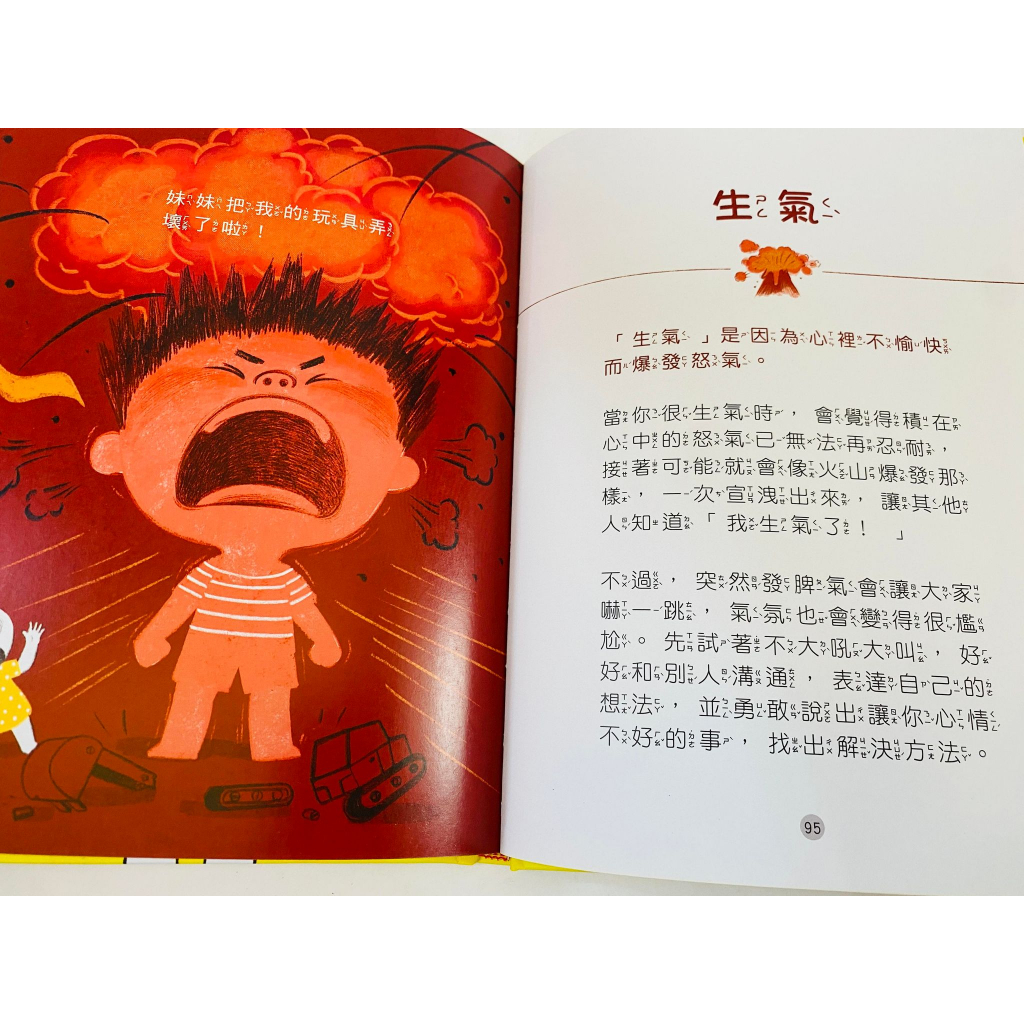 妹妹把我的玩具弄
壞了啦！
生氣
「生氣」是因為心裡不愉快
而爆發怒氣。
當你很生氣時，會覺得積在
心中的怒氣已無法再忍耐，
接著可能就會像火山爆發那
樣，一次宣洩出來，讓其他
人知道「我生氣了！」
不過，突然發脾氣會讓大家
嚇一跳，氣氛也會變得很尷
尬。先試著不大吼大叫，好
好和別人溝通，表達自己的
想法，並勇敢說出讓你心情
不好的事，找出解決方法。
95